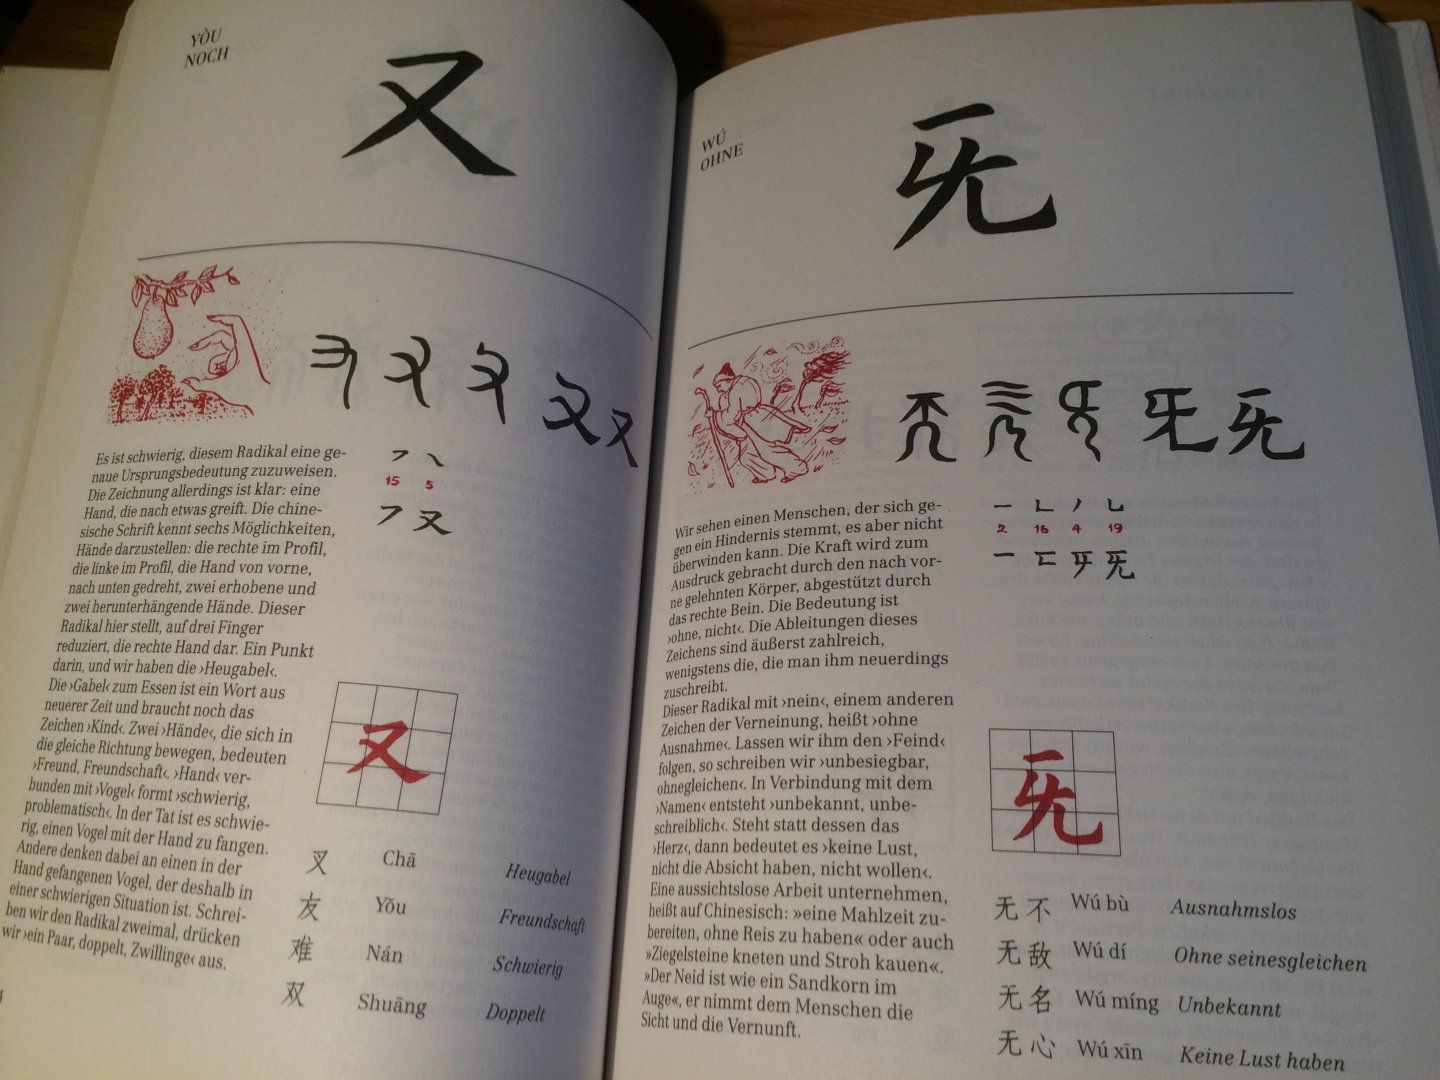 YÒU
NOCH
又
Es ist schwierig, diesem Radikal eine ge-
naue Ursprungsbedeutung zuzuweisen.
Die Zeichnung allerdings ist klar: eine
Hand, die nach etwas greift. Die chine-
sische Schrift kennt sechs Möglichkeiten,
Hände darzustellen: die rechte im Profil,
die linke im Profil, die Hand von vorne,
nach unten gedreht, zwei erhobene und
zwei herunterhängende Hände. Dieser
Radikal hier stellt, auf drei Finger
reduziert, die rechte Hand dar. Ein Punkt
darin, und wir haben die ›Heugabel‹.
Die ›Gabel‹ zum Essen ist ein Wort aus
neuerer Zeit und braucht noch das
Zeichen ›Kind‹. Zwei ›Hände‹, die sich in
die gleiche Richtung bewegen, bedeuten
›Freund, Freundschaft‹. ›Hand‹ ver-
bunden mit ›Vogel‹ formt ›schwierig,
problematisch‹. In der Tat ist es schwie-
rig, einen Vogel mit der Hand zu fangen.
Andere denken dabei an einen in der
Hand gefangenen Vogel, der deshalb in
einer schwierigen Situation ist. Schrei-
ben wir den Radikal zweimal, drücken
wir ›ein Paar, doppelt, Zwillinge‹ aus.
15 5
又
又
叉 Chā Heugabel
友 Yǒu Freundschaft
难 Nán Schwierig
双 Shuāng Doppelt
4
WÚ
OHNE
无
Wir sehen einen Menschen, der sich ge-
gen ein Hindernis stemmt, es aber nicht
überwinden kann. Die Kraft wird zum
Ausdruck gebracht durch den nach vor-
ne gelehnten Körper, abgestützt durch
das rechte Bein. Die Bedeutung ist
›ohne, nicht‹. Die Ableitungen dieses
Zeichens sind äußerst zahlreich,
wenigstens die, die man ihm neuerdings
zuschreibt.
Dieser Radikal mit ›nein‹, einem anderen
Zeichen der Verneinung, heißt ›ohne
Ausnahme‹. Lassen wir ihm den ›Feind‹
folgen, so schreiben wir ›unbesiegbar,
ohnegleichen‹. In Verbindung mit dem
›Namen‹ entsteht ›unbekannt, unbe-
schreiblich‹. Steht statt dessen das
›Herz‹, dann bedeutet es ›keine Lust,
nicht die Absicht haben, nicht wollen‹.
Eine aussichtslose Arbeit unternehmen,
heißt auf Chinesisch: »eine Mahlzeit zu-
bereiten, ohne Reis zu haben« oder auch
»Ziegelsteine kneten und Stroh kauen«.
»Der Neid ist wie ein Sandkorn im
Auge«, er nimmt dem Menschen die
Sicht und die Vernunft.
2 16 4 19
旡
旡
无不 Wú bù Ausnahmslos
无敌 Wú dí Ohne seinesgleichen
无名 Wú míng Unbekannt
无心 Wú xīn Keine Lust haben